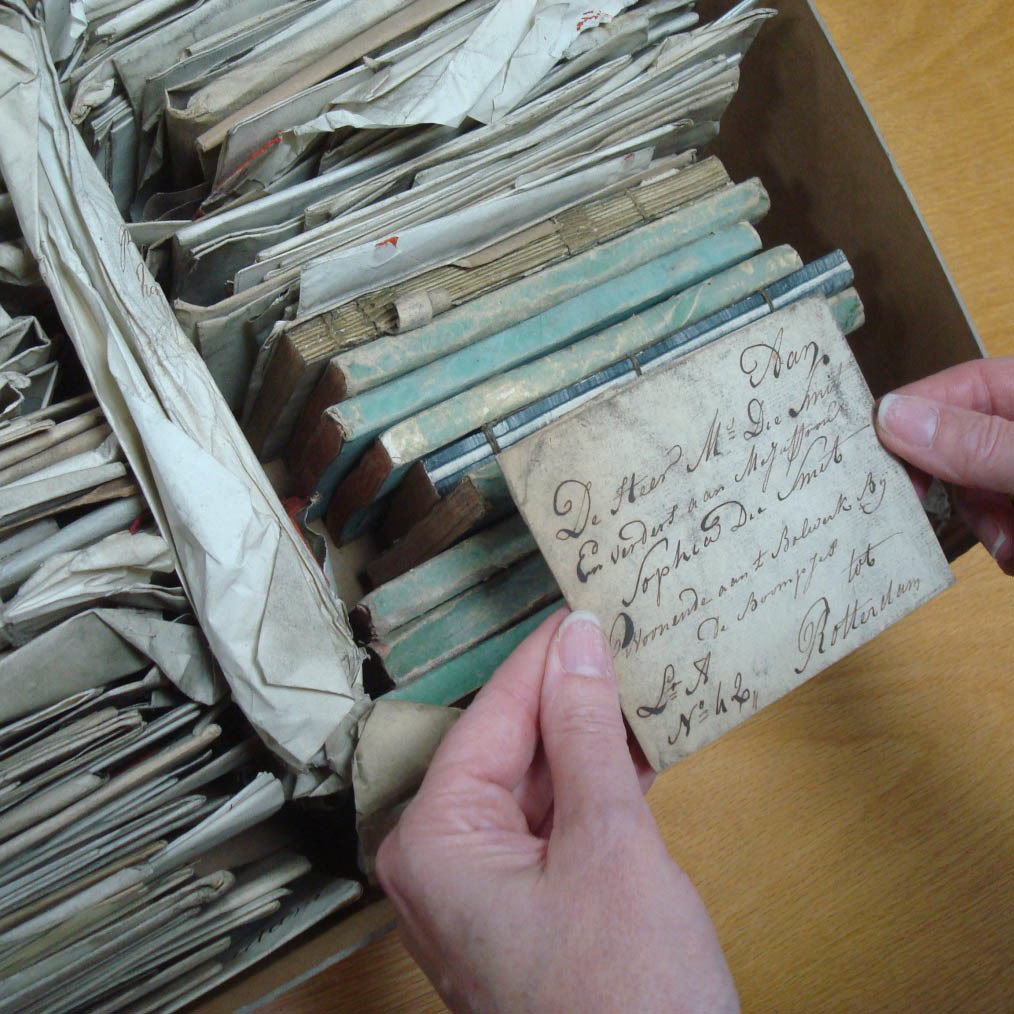 Aan.
De Heer Mr. Die Smit
En verders aan Mejuffrou
Sophia Die Smit
Woonende aan t Bolwerk By
de Boompjes tot
Lr A Rotterdam
No 42,